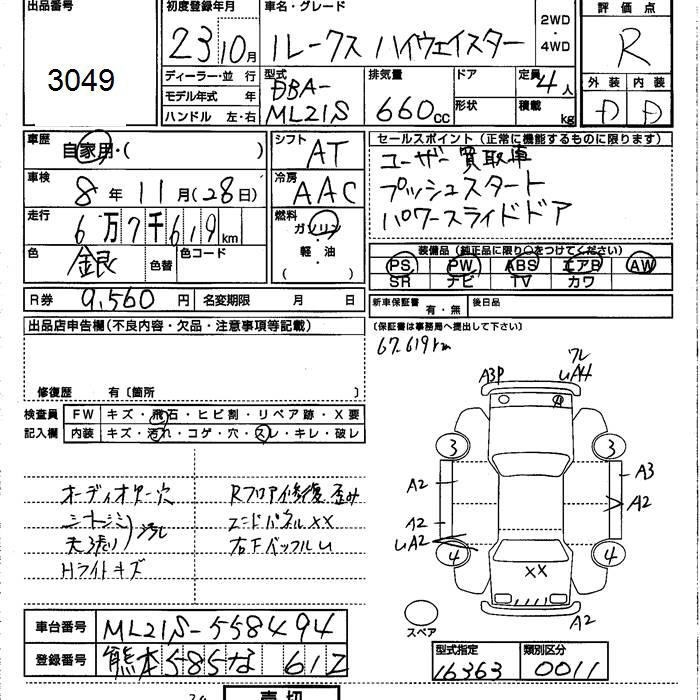 出品番号
3049
初度登録年月
23 10月
車名・グレード
ルークス ハイウェイスター
2WD
・
4WD
評価点
R
外装 内装
D D
ディーラー・並 行
モデル年式 年
ハンドル 左・右
型式
DBA-
ML21S
排気量
660cc
ドア
形状
定員 4人
積載 kg
車歴
自家用・( )
車検
8年 11月(28日)
走行
6万7千619km
色
銀
色替
色コード
シフト
AT
冷房
AAC
燃料
ガソリン
・
軽・油
( )
セールスポイント(正常に機能するものに限ります)
ユーザー買取車
プッシュスタート
パワースライドドア
装備品(純正品に限り○をつけてください)
PS PW ABS エアB AW
SR ナビ TV カワ
R券 9,560円 名変期限 月 日
新車保証書 有・無 後日品
(保証書は事務局へ提出して下さい)
出品店申告欄(不良内容・欠品・注意事項等記載)
67.619km
修復歴 有〔箇所 〕
検査員
記入欄
FW キズ・飛石・ヒビ割・リペア跡・X要
内装 キズ・汚れ・コゲ・穴・スレ・キレ・破レ
オーディオカバー穴
シートシミ
天張り
汚れ
Hライトキズ
Rフロア修復歪み
エンドパネルXX
右下バッフルU
A3P
ワレ
UA4
A
3
3
A2
A3
A2
A2
UA2
4
4
XX
A2
スペア
車台番号 ML21S-558494
登録番号 熊本585な 612
型式指定
16363
類別区分
0011
売切